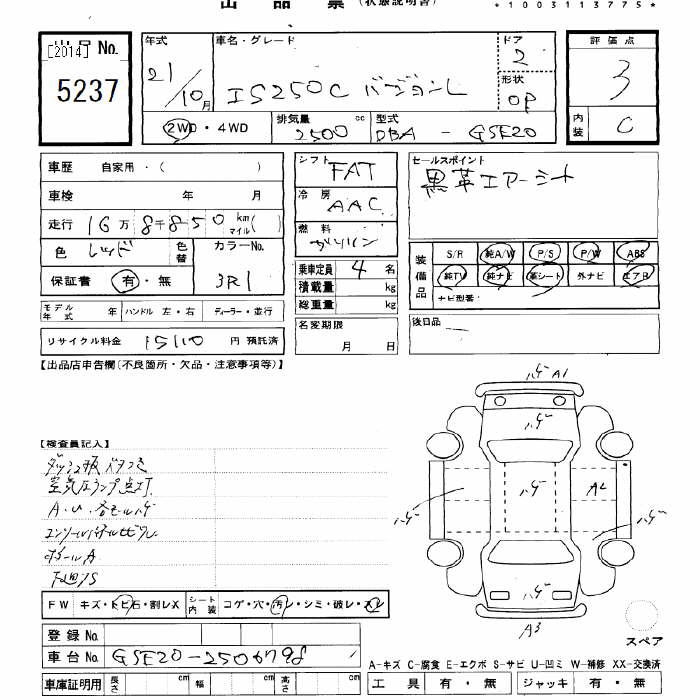 出品票(状態説明書)
*1003113775*
[2014] 出品 No.
5237
年式
21/10月
車名・グレード
IS250C バージョンL
ドア
2
形状
OP
評価点
3
内装
C
2WD・4WD
排気量 cc
2500
型式
DBA - GSE20
車歴 自家用・( )
車検 年 月
走行 16万8千850 km マイル( )
色 レッド
色替
カラーNo.
3R1
保証書 有・無
モデル年式 年 ハンドル 左・右 ディーラー・並行
リサイクル料金 15110 円 預託済
シフト FAT
冷房 AAC
燃料 ガソリン
乗車定員 4 名
積載量 kg
総重量 kg
名変期限
月 日
セールスポイント
黒革エアーシート
装備品
S/R 純A/W P/S P/W ABS
純TV 純ナビ 革シート 外ナビ エアB
ナビ型番:
後日品
【出品店申告欄(不良箇所・欠品・注意事項等)】
【検査員記入】
ダッシュ板ベタつき
空気圧ランプ点灯
A.U.各モールハゲ
ポールA
下廻/S
FW キズ・トビ石・割レX
シート内装 コゲ・穴・汚レ・シミ・破レ・スレ
登録 No.
車台 No. GSE20-2506798
車庫証明用 長さ cm 幅 cm 高さ cm
ハゲ A1
ハゲ
ハゲ
A2
ハゲ
ハゲ
ハゲ
A3
スペア
A-キズ C-腐食 E-エクボ S-サビ U-凹ミ W-補修 XX-交換済
工具 有・無 ジャッキ 有・無